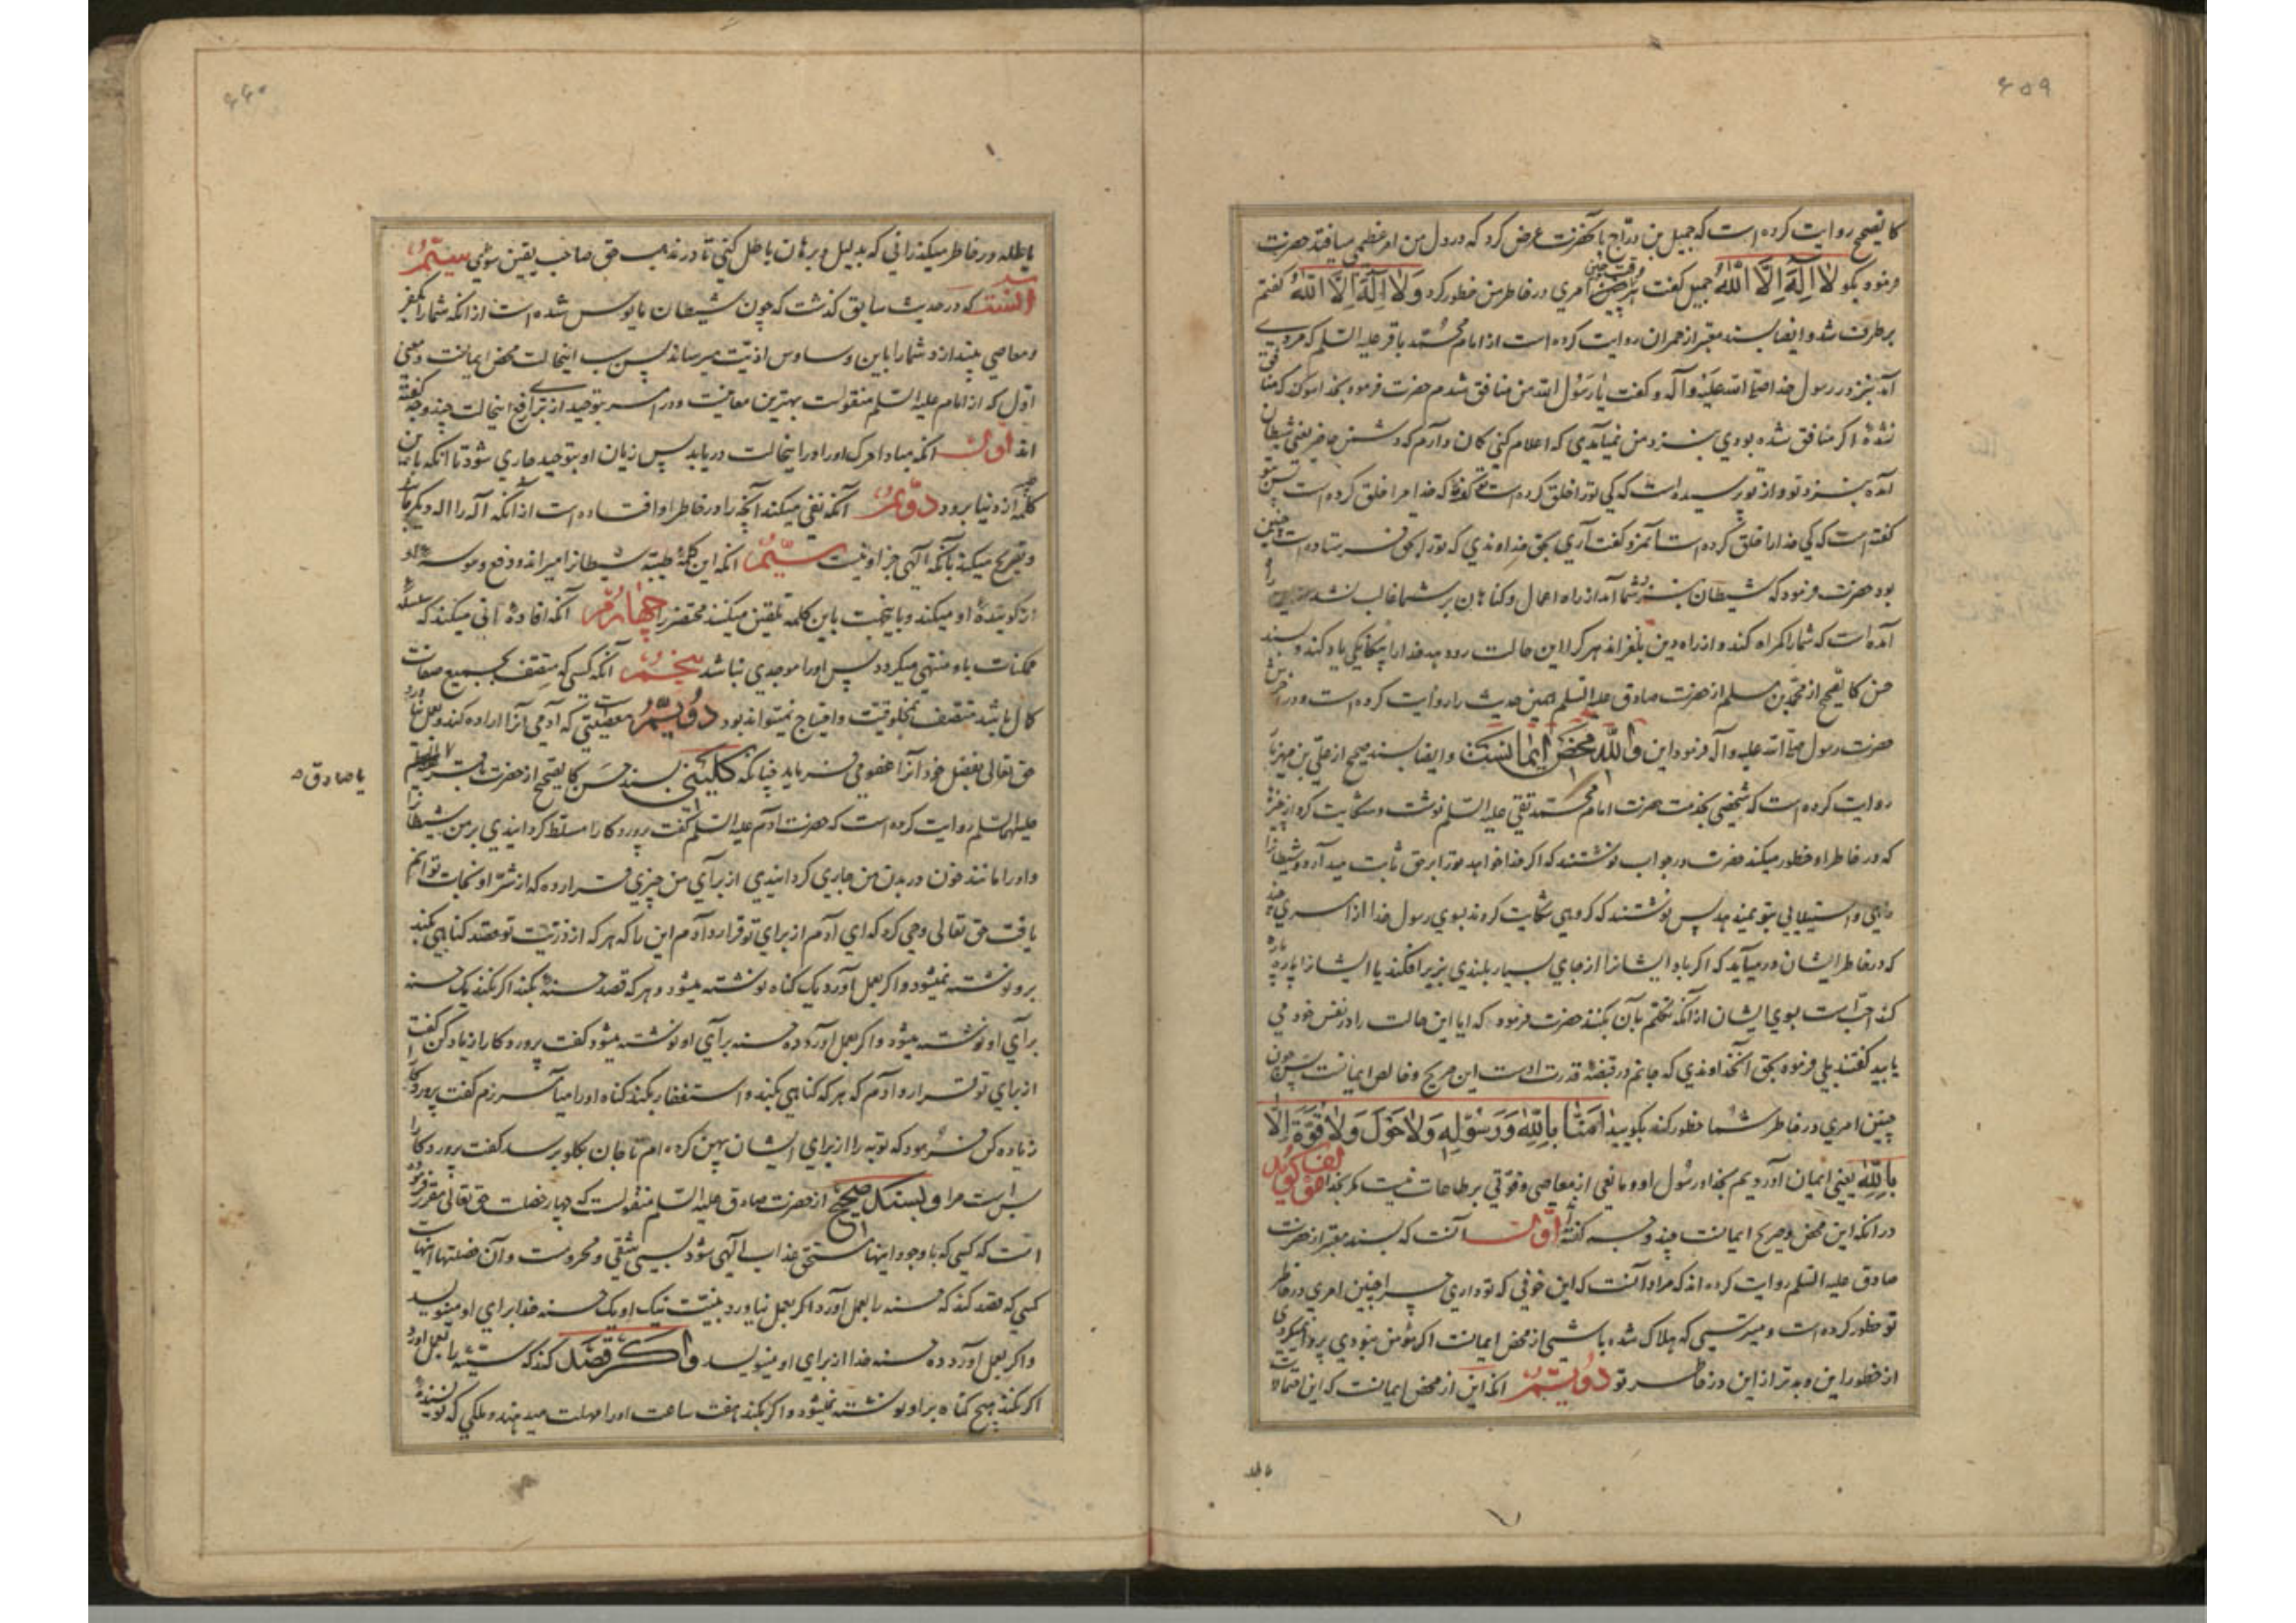 ۶۵۹
کالصحیح روایت کرده است که جمیل بن دراج بآنحضرت عرض کرد که در دل من امر عظیمی میافتد حضرت
فرمود بگو لا اله الا الله جمیل گفت پس هر وقت چنین امری در خاطر من خطور کرد و لا اله الا الله گفتم
برطرف شد و ایضا بسند معتبر از حمران روایت کرده است از امام محمد باقر علیه السلام که مردی
آمد بنزد رسول خدا صلی الله علیه و آله و گفت یا رسول الله من منافق شدم حضرت فرمود بخدا سوکند که منافق
نشدهٔ اکر منافق شده بودی بنزد من نمیآمدی که اعلام کنی کمان دارم که دشمن حاضر یعنی شیطان
آمده بنزد تو و از تو پرسیده است که کی تو را خلق کرده است تو کفتهٔ که خدا مرا خلق کرده است پس بتو
کفته است که کی خدا را خلق کرده است آنمرد کفت آری بحق خداوندی که تو را بحق فرستاده است چنین
بود حضرت فرمود که شیطان بنزد شما آمد از راه اعمال و کناهان بر شما غالب نشد از این راه
آمده است که شما را کمراه کند و از راه دین بلغزاند هر که را این حالت رو دهد خدا را بیکانکی یاد کند و بسند
حسن کالصحیح از محمد بن مسلم از حضرت صادق علیه السلام همین حدیث را روایت کرده است و در آخرش
حضرت رسول صلی الله علیه و آله فرمود این والله محض ایمانست و ایضا بسند صحیح از علی بن مهزیار
روایت کرده است که شخصی بخدمت حضرت امام محمد تقی علیه السلام نوشت و شکایت کرد از چیزی
که در خاطر او خطور میکند حضرت در جواب نوشتند که اکر خدا خواهد تو را بر حق ثابت میدارد و شیطانرا
راهی و استیلائی بتو نمیدهد پس نوشتند که کروهی شکایت کردند بسوی رسول خدا از امری چند
که در خاطر ایشان در میآید که اکر باد ایشانرا از جای بسیار بلندی بزیر افکند یا ایشانرا پاره پاره
کند احبّ است بسوی ایشان از آنکه تکلم بآن بکنند حضرت فرمود که ایا این حالت را در نفس خود می
یابید کفتند بلی فرمود بحق آنخداوندی که جانم در قبضهٔ قدرت اوست این صریح و خالص ایمانست پس چون
چنین امری در خاطر شما خطور کند بکویید امنا بالله و رسوله و لا حول و لا قوة الا
بالله یعنی ایمان آوردیم بخدا و رسول او و مانعی از معاصی و قوّتی بر طاعات نیست مکر بخدا
در آنکه این محض و صریح ایمانست چند وجه کفته‌اند اول آنست که بسند معتبر از حضرت
صادق علیه السلام روایت کرده اند که مراد آنست که این خوفی که تو داری چرا چنین امری در خاطر
تو خطور کرده است و میترسی که هلاک شده باشی از محض ایمانست اکر مؤمن نبودی پروا نمیکردی
از خطور این و بدتر از این در خاطر تو دویم آنکه این از محض ایمانست که این احتمالات
باطله
۶۶۰
باطله در خاطر میکذرانی که بدلیل و برهان باطل کنی تا در مذهب حق صاحب یقین شوی سیم
آنست که در حدیث سابق کذشت که چون شیطان مأیوس شده است از آنکه شما را بکفر
و معاصی بیندازد شما را باین وساوس اذیت میرساند پس سبب اینحالت محض ایمانست و معنی
اول که از امام علیه السلام منقولست بهترین معانیست و در امر بتوحید از برای رفع اینحالت چند وجه کفته
اند اول آنکه مبادا مرک او را در اینحالت دریابد پس زبان او بتوحید جاری شود تا آنکه با ایمان
کلمه از دنیا برود دویم آنکه نفی میکند آنچه را در خاطر او افتاده است از آنکه آله را اله دیکر باشد
و تصریح میکند بآنکه الهی جز او نیست سیم آنکه این کلمهٔ طیبه شیطانرا میراند و دفع وسوسه او
از کویندهٔ او میکند و باینجهت باین کلمه تلقین میکنند محتضر را چهارم آنکه افادهٔ آنی میکند که سلسله
ممکنات باو منتهی میکردد پس او را موجدی نباشد پنجم آنکه کسی که متصف بجمیع صفات
کمال باشد متصف بمخلوقیت و احتیاج نمیتواند بود دویم معصیتی که آدمی آنرا اراده کند و بعمل نیاورد
حق تعالی بفضل خود آنرا عفو می فرماید چنانکه کلینی بسند حسن کالصحیح از حضرت باقر
یا صادق
علیهما السلام روایت کرده است که حضرت آدم علیه السلام کفت پروردکارا مسلط کردانیدی بر من شیطانرا
و او را مانند خون در بدن من جاری کردانیدی از برای من چیزی قرار ده که از شرّ او نجات توانم
یافت حق تعالی وحی کرد که ای آدم از برای تو قرار دادم این را که هر که از ذریّت تو قصد کناهی بکند
برو نوشته نمیشود و اکر بعمل آورد یک کناه نوشته میشود و هر که قصد حسنهٔ بکند اکر نکند یک حسنه
برای او نوشته میشود و اکر بعمل آورد ده حسنه برای او نوشته میشود کفت پروردکارا زیاد کن کفت
از برای تو قرار دادم که هر که کناهی بکند و استغفار بکند کناه او را میآمرزم کفت پروردکارا
زیاده کن فرمود که توبه را از برای ایشان پهن کرده ام تا جان بکلو برسد کفت پروردکارا
بس است مرا و بسند صحیح از حضرت صادق علیه السلام منقولست که چهار خصلت حق تعالی مقرر فرموده
است که کسی که با وجود اینها مستحق عذاب الهی شود بسی شقی و محروم است و آن خصلتها اینهاست
کسی که قصد کند که حسنه را بعمل آورد اکر بعمل نیاورد بنیّت نیک او یک حسنه خدا برای او مینویسد
و اکر بعمل آورد ده حسنه خدا از برای او مینویسد و اکر قصد کند که سیّئه را بعمل آورد
اکر نکند هیچ کناه بر او نوشته نمیشود و اکر بکند هفت ساعت او را مهلت میدهند و ملکی که نویسندهٔ